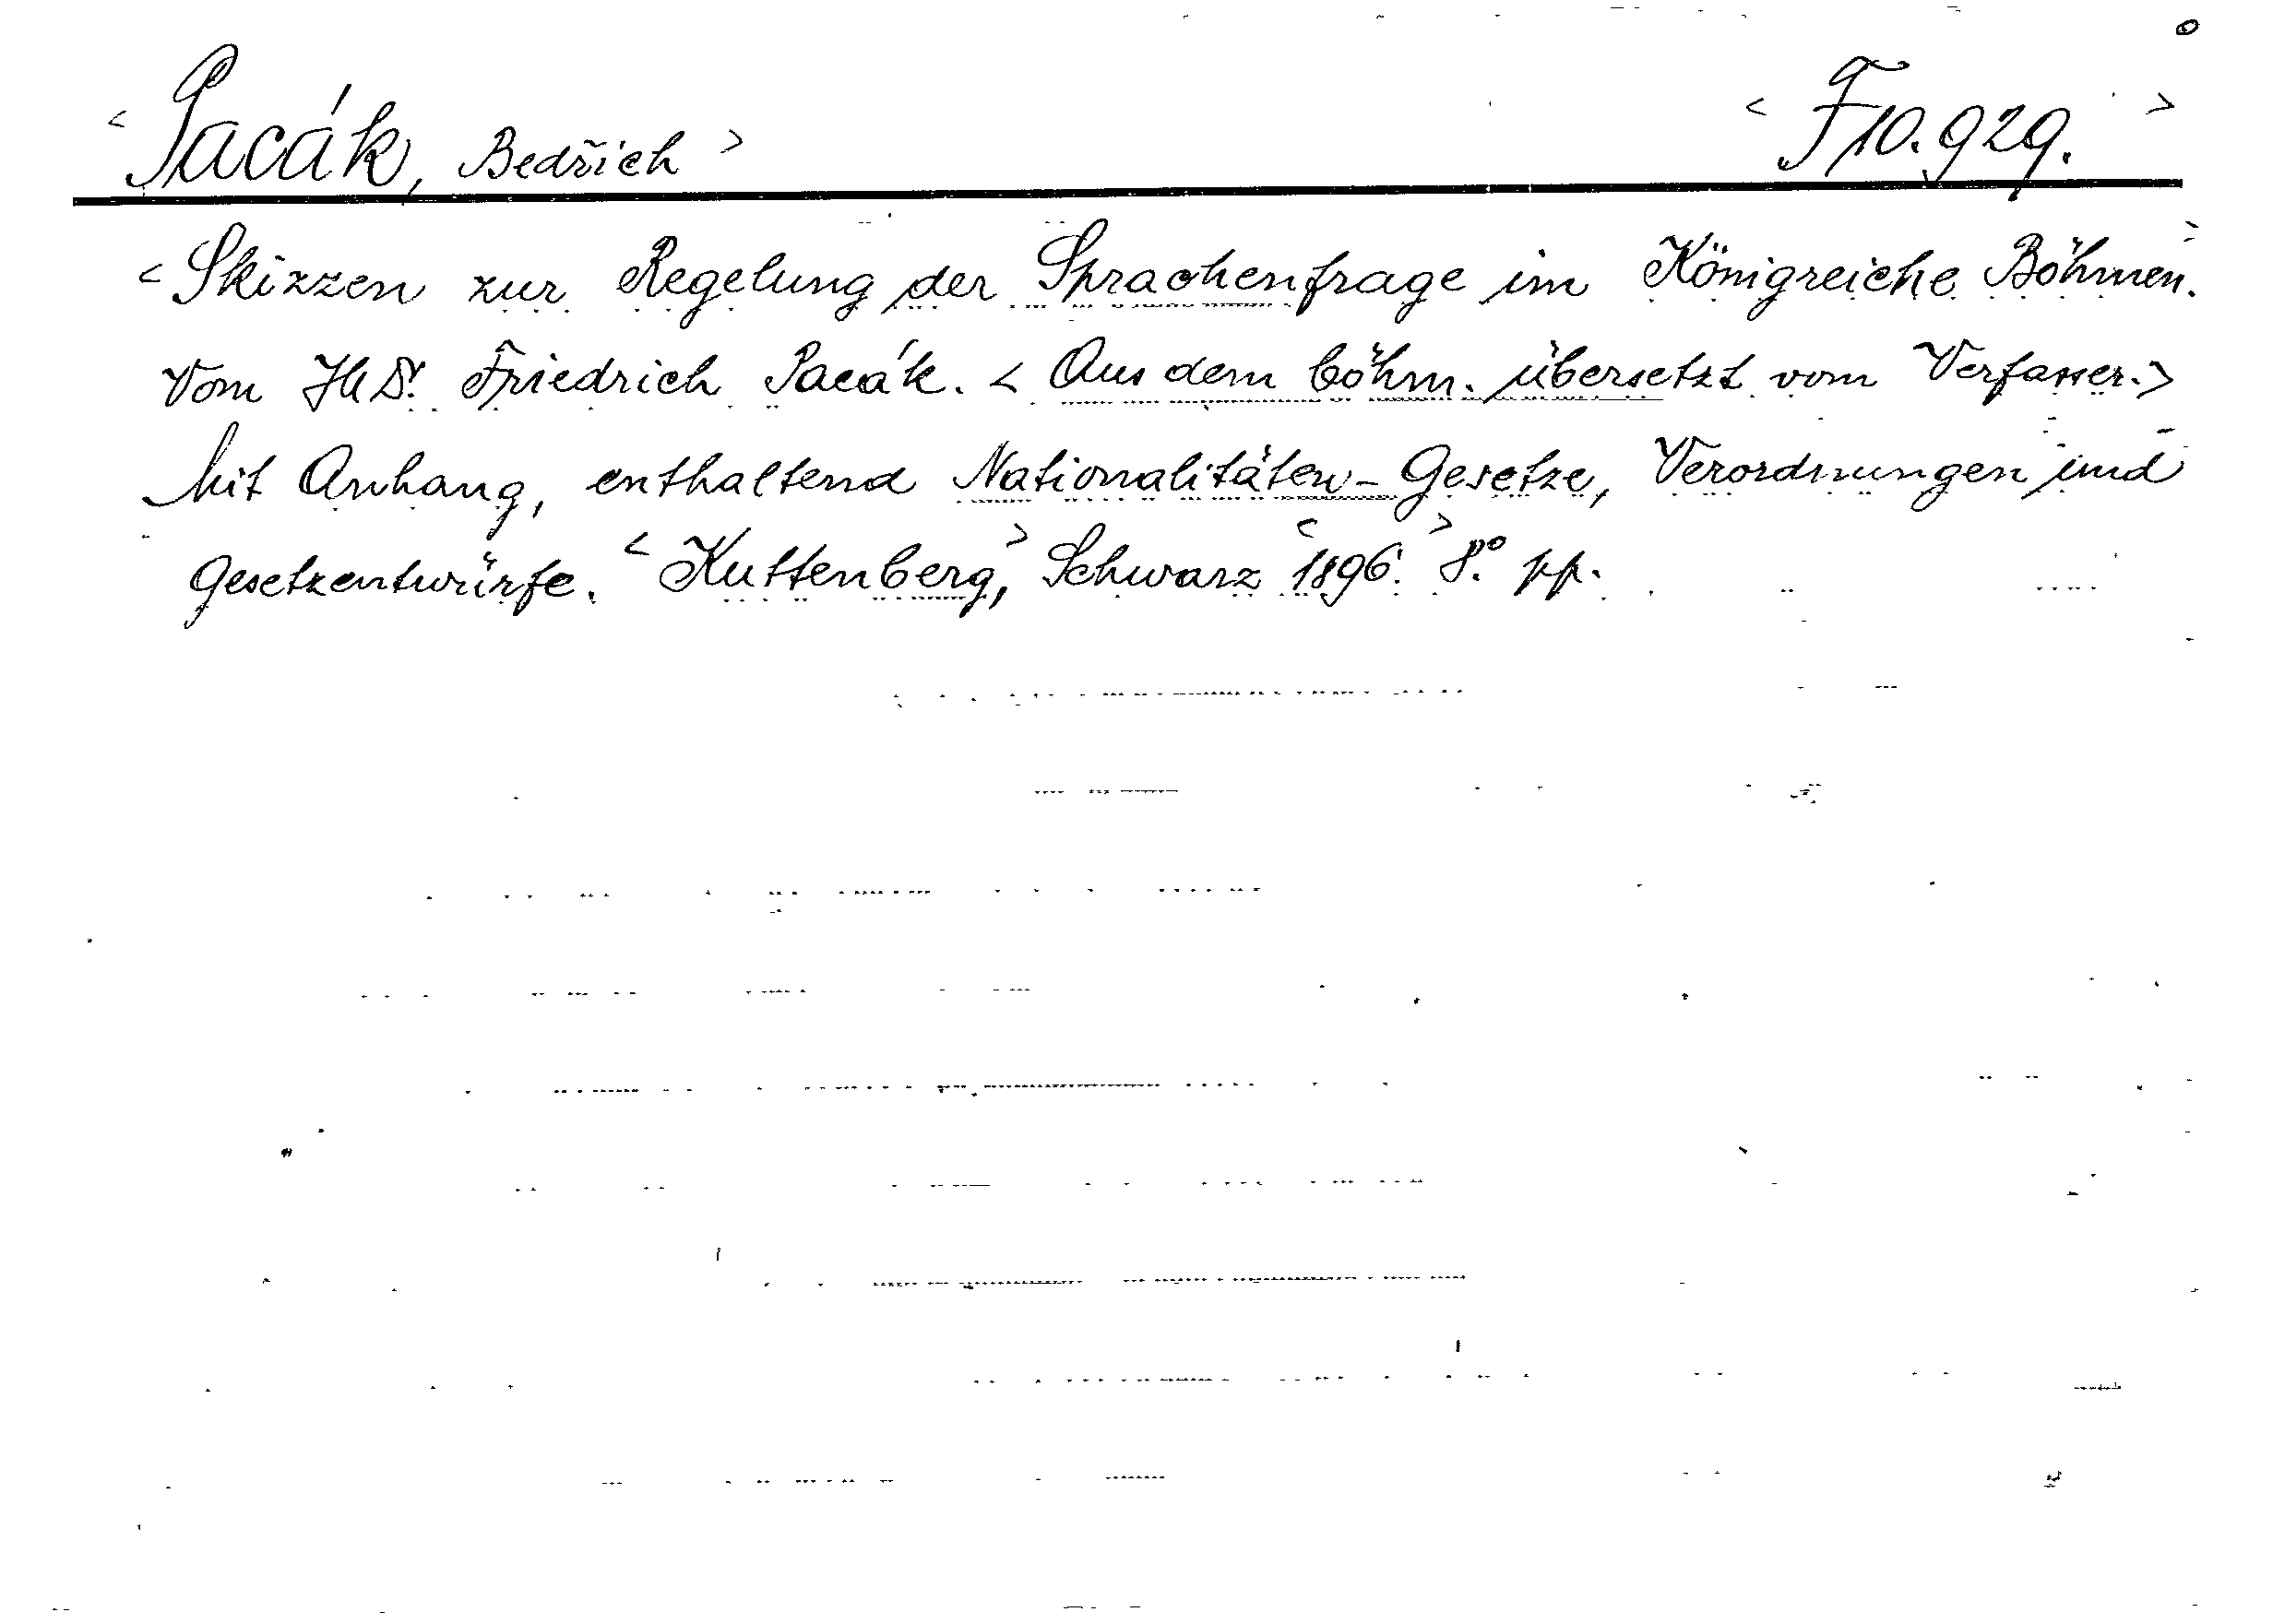 <Pacák, Bedřich> <F10.929.>
<Skizzen zur Regelung der Sprachenfrage im Königreiche Böhmen.
Vom JUDr. Friedrich Pacák. <Aus dem böhm. übersetzt vom Verfasser.>
Mit Anhang, enthaltend Nationalitäten-Gesetze, Verordnungen und
Gesetzentwürfe. <Kuttenberg,> Schwarz <1896.> 8.° pp.